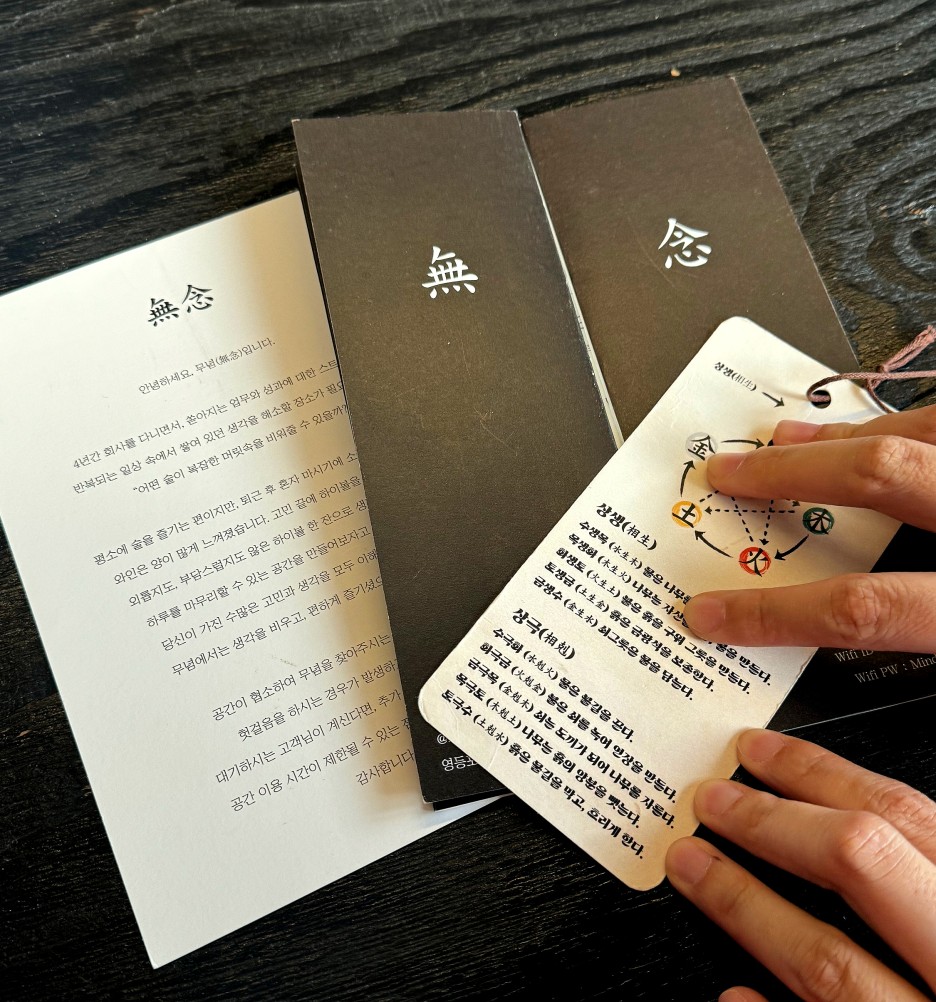 無念
안녕하세요. 무념(無念)입니다.
4년간 회사를 다니면서, 쏟아지는 업무와 성과에 대한
반복되는 일상 속에서 쌓여 있던 생각을 해소할 장소가
“어떤 술이 복잡한 머릿속을 비워줄 수 있을까
평소에 술을 즐기는 편이지만, 퇴근 후 혼자 마시기에
와인은 양이 많게 느껴졌습니다. 고민 끝에 하이볼을
외롭지도, 부담스럽지도 않은 하이볼 한 잔으로
하루를 마무리할 수 있는 공간을 만들어보자고
당신이 가진 수많은 고민과 생각을 모두
무념에서는 생각을 비우고, 편하게
공간이 협소하여 무념을 찾아주시는
헛걸음을 하시는 경우가
대기하시는 고객님이 계신다면, 추가
공간 이용 시간이 제한될 수 있는
감사합니다
無
念
@
상생(相生)
金
土
火
木
상생(相生)
수생목 (水生木) 물은
목생화 (木生火) 나무는
화생토 (火生土) 불은 흙을 구워 그릇을 만든다.
토생금 (土生金) 흙은 금광석을 보존한다.
금생수 (金生水) 쇠그릇은 물을 담는다.
상극(相剋)
수극화 (水剋火) 물은 불길을 끈다.
화극금 (火剋金) 불은 쇠를 녹여 연장을 만든다.
금극목 (金剋木) 쇠는 도끼가 되어 나무를 자른다.
목극토 (木剋土) 나무는 흙의 양분을 뺏는다.
토극수 (土剋水) 흙은 물길을 막고, 흐리게 한다.
Wifi
Wifi PW :